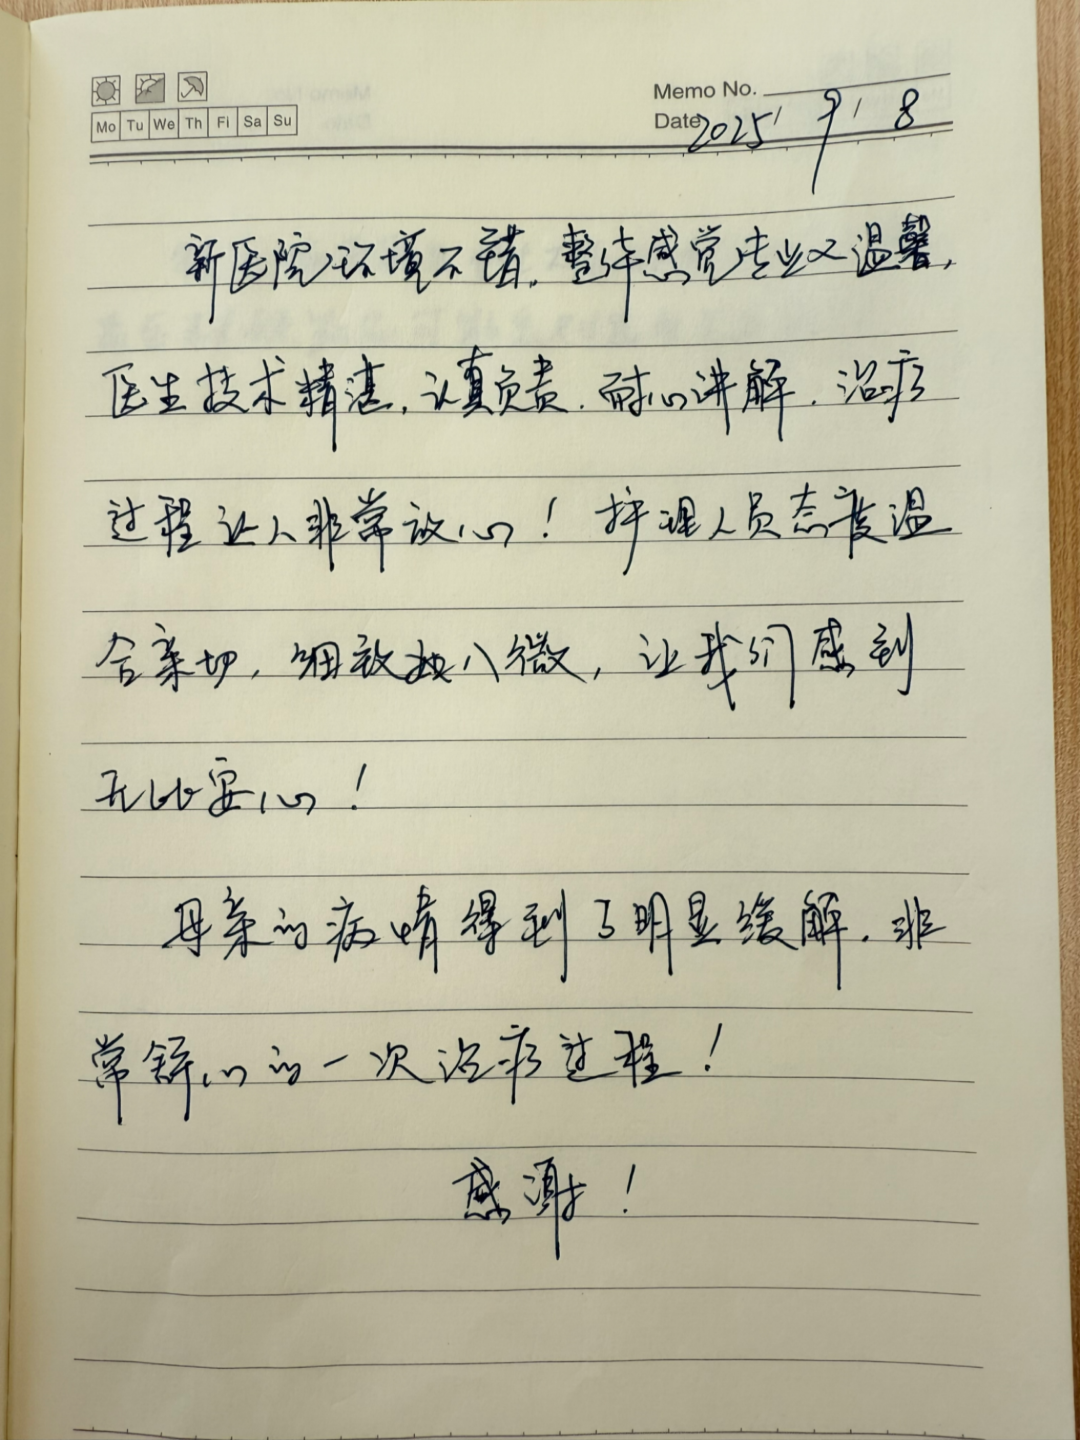 Memo No.
Mo Tu We Th Fi Sa Su
Date 2025 / 9 / 8
新医院环境不错,整体感觉专业又温馨,
医生技术精湛,认真负责,耐心讲解,治疗
过程让人非常放心!护理人员态度温
合亲切,细致入微,让我们感到
无比安心!
母亲的病情得到了明显缓解,非
常舒心的一次治疗过程!
感谢!